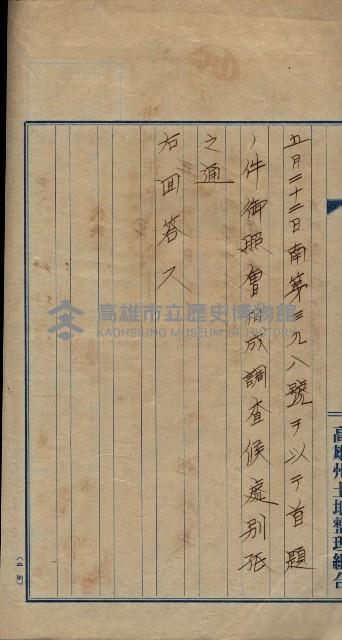 五月二十二日南第三九八號ヲ以テ首題
ノ件御照會相成調査候處別紙
之通
右回答ス
高雄州土地整理組合
高雄市立歷史博物館
KAOHSIUNG MUSEUM OF HISTORY